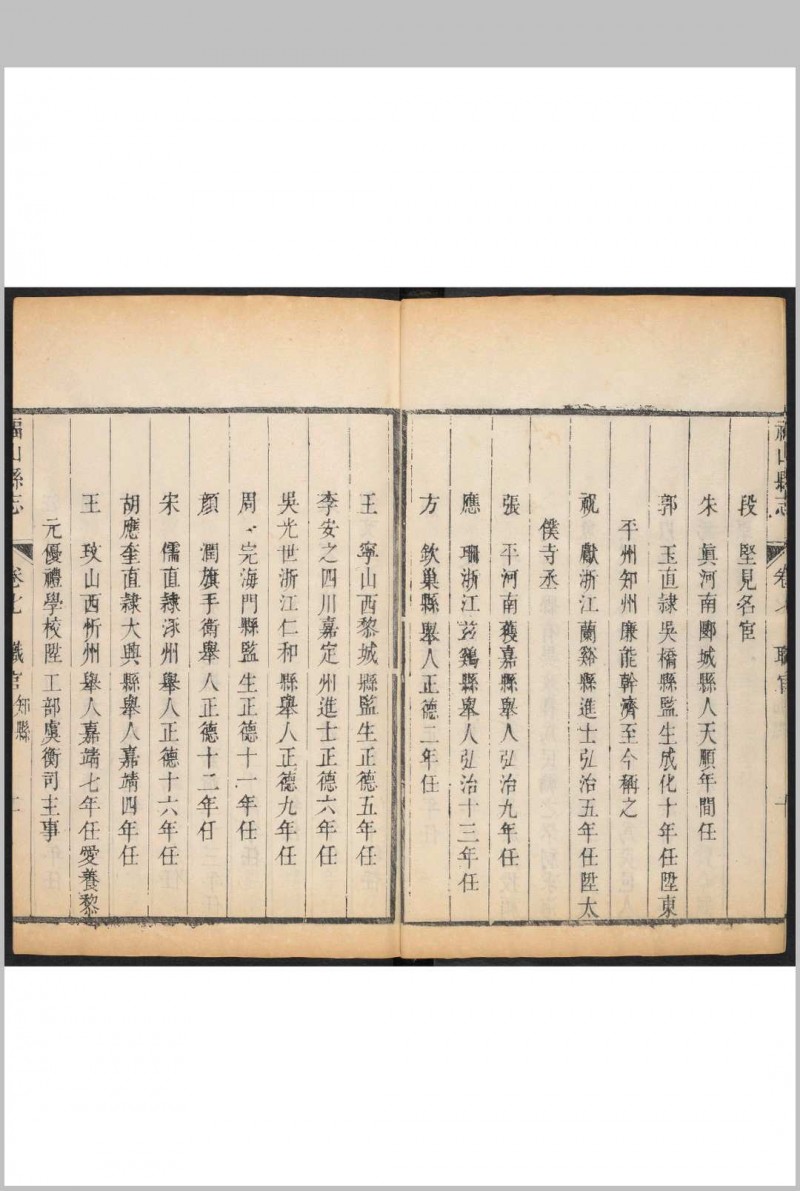 福山縣志 卷七 職官
段 堅見名宦
朱 眞河南郾城縣人天順年間任
郭 玉直隷吳橋縣監生成化十年任陞東
平州知州廉能幹濟至今稱之
祝 獻浙江蘭谿縣進士弘治五年任陞太
僕寺丞
張 平河南獲嘉縣舉人弘治九年任
應 珊浙江玆鷄縣舉人弘治十三年任
方 欽巢縣舉人正德二年任
王 寧山西黎城縣監生正德五年任
李安之四川嘉定州進士正德六年任
吳光世浙江仁和縣舉人正德九年任
周 完海門縣監生正德十一年任
顏 潤旗手衛舉人正德十二年任
宋 儒直隷涿州舉人正德十六年任
胡應奎直隷大興縣舉人嘉靖四年任
王 玫山西忻州舉人嘉靖七年任愛養黎
元優禮學校陞工部虞衡司主事
福山縣志 卷七 職官 知縣